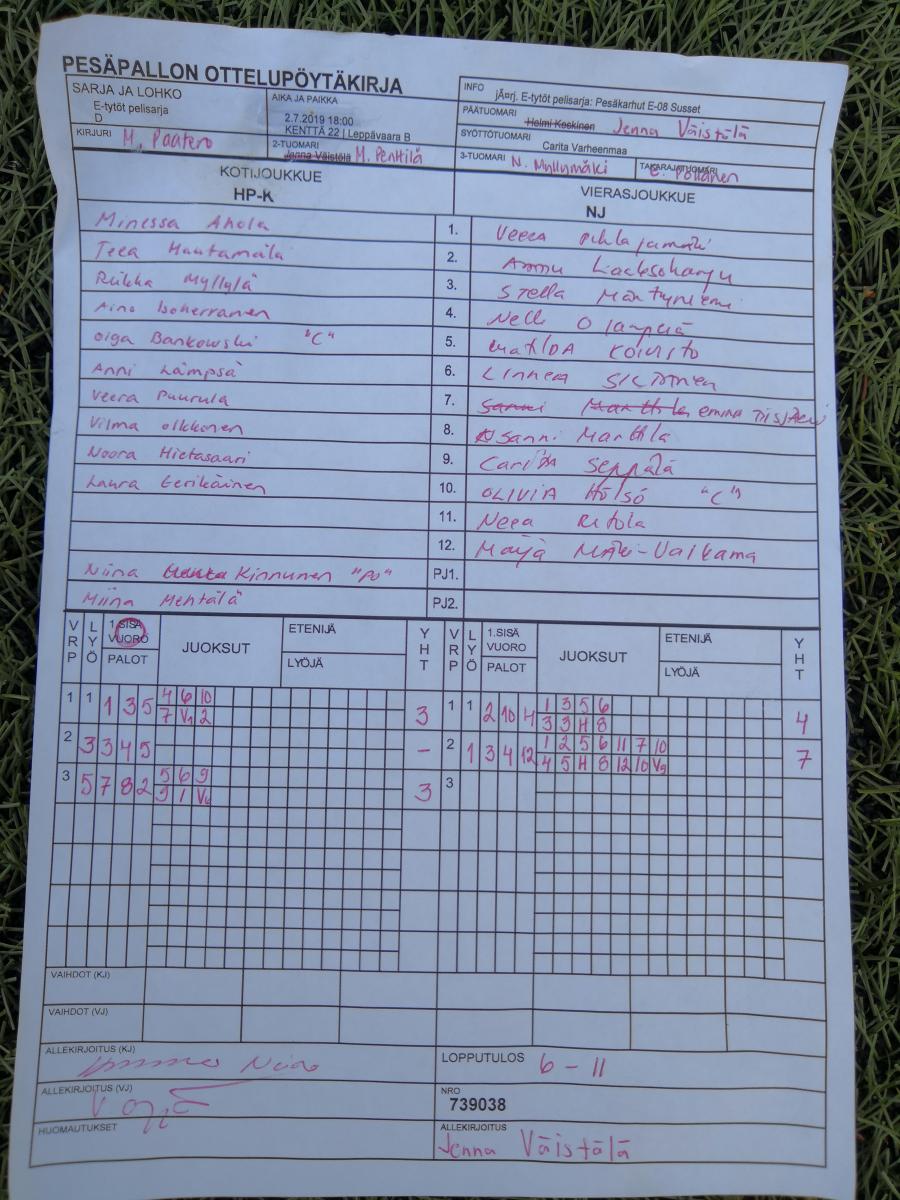 PESÄPALLON OTTELUPÖYTÄKIRJA
SARJA JA LOHKO
E-tytöt pelisarja
D
AIKA JA PAIKKA
2.7.2019 18:00
KENTTÄ 22 | Leppävaara B
INFO
jÃ¤rj. E-tytöt pelisarja: Pesäkarhut E-08 Susset
PÄÄTUOMARI Helmi Koskinen Jenna Väistölä
SYÖTTÖTUOMARI Carita Varheenmaa
KIRJURI M. Paatero
2-TUOMARI Jenna Väistölä M. Penttilä
3-TUOMARI N. Myllymäki
TAKARAJATUOMARI
KOTIJOUKKUE
HP-K
VIERASJOUKKUE
NJ
Minessa Ahola 1. Veera Pihlajamäki
Teea Hautamäki 2. Ammu Laaksoharju
Riikka Myllylä 3. Stella Mäntyniemi
Aino Isoherranen 4. Nelli
Olga Bankowski "C" 5. MatilDA Koivisto
Anni Lämpsä 6. Linnea
Veera Puurula 7. Sanni Marttila
Vilma Olkkonen 8. Sanni Marttila
Noora Hietasaari 9. Seppälä
Laura Eerikäinen 10. OLIVIA Hölsö "C"
11. Neea Ritola
12. Maija Mäki-Valkama
Niina Kinnunen "PJ" PJ1.
Miina Mehtälä PJ2.
VRP LYÖ 1.SISÄ VUORO PALOT JUOKSUT ETENIJÄ LYÖJÄ YHT VRP LYÖ 1.SISÄ VUORO PALOT JUOKSUT ETENIJÄ LYÖJÄ YHT
1 1 1 3 5 4 6 10 3 1 1 2 10 4 1 3 5 6 4
7 V1 2 3 3 4 8
2 3 3 4 5 – 2 1 3 4 12 1 2 5 6 11 7 10 7
4 5 4 8 12 10 V9
3 5 7 8 2 5 6 9 3 3
9 1
VAIHDOT (KJ)
VAIHDOT (VJ)
ALLEKIRJOITUS (KJ)
LOPPUTULOS 6 - 11
ALLEKIRJOITUS (VJ)
NRO
739038
HUOMAUTUKSET
ALLEKIRJOITUS
Jenna Väistölä